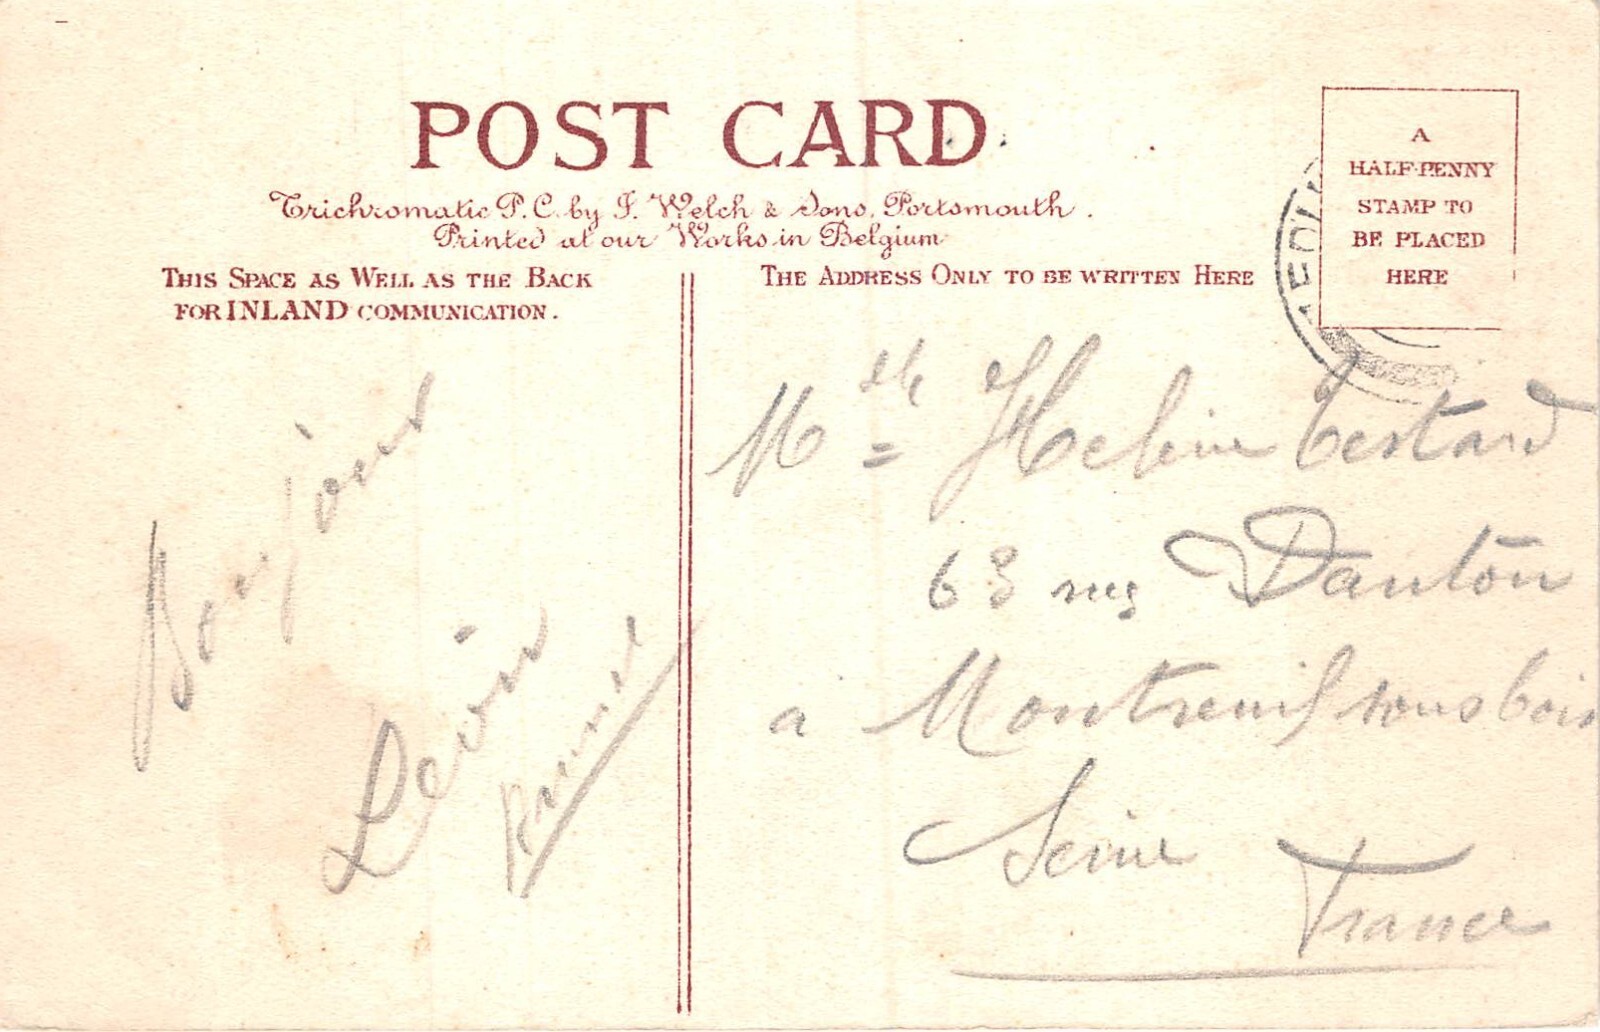 POST CARD
Trichromatic P.C. by J. Welch & Sons, Portsmouth.
Printed at our Works in Belgium
THIS SPACE AS WELL AS THE BACK
FOR INLAND COMMUNICATION.
THE ADDRESS ONLY TO BE WRITTEN HERE
A
HALF-PENNY
STAMP TO
BE PLACED
HERE
Bonjour
Mlle Helene
63 rue Danton
a Montreuil sous bois
Seine
France